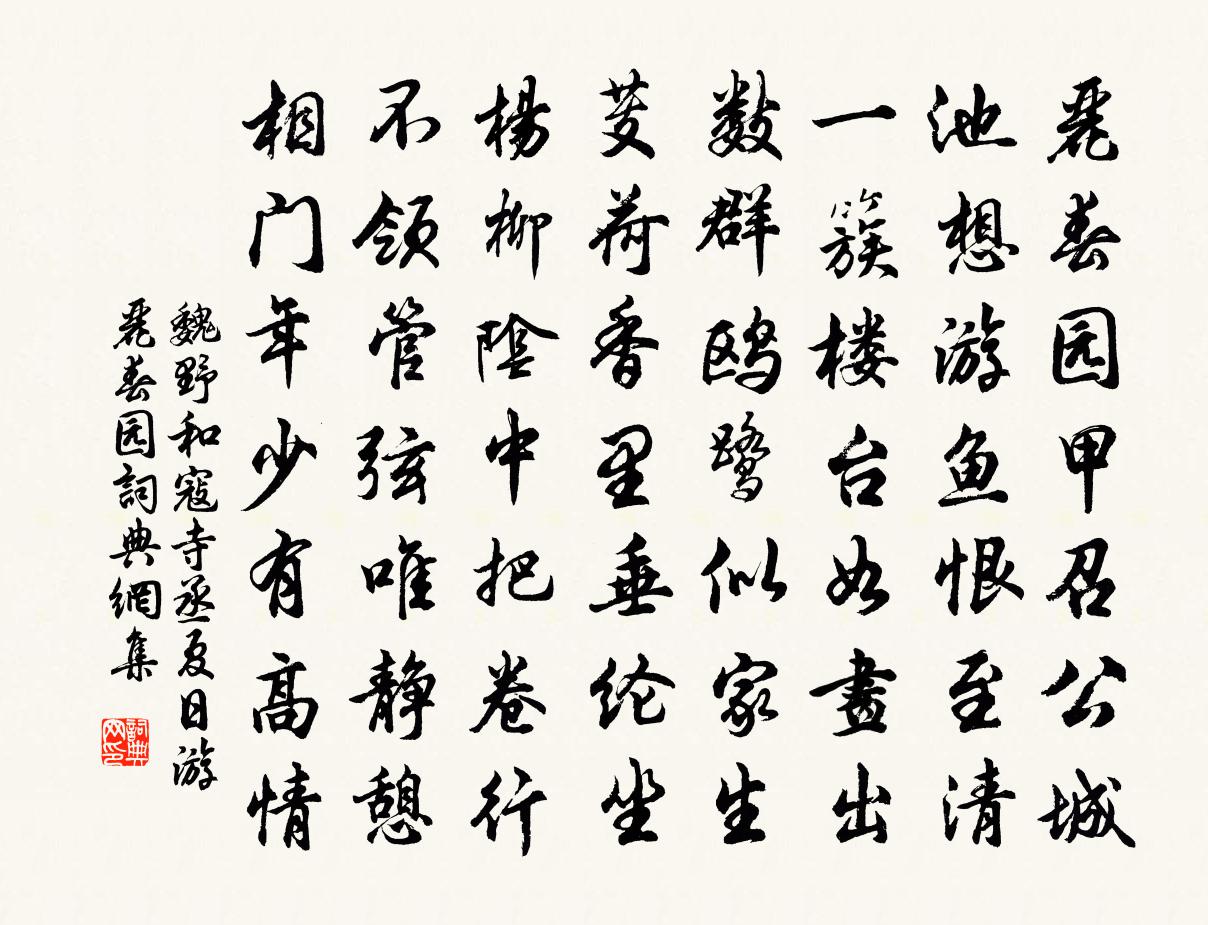 丽春园甲召公城
池想游鱼恨至清
一簇楼台如画出
数群鸥鹭似家生
芰荷香里垂纶坐
杨柳阴中把卷行
不领管弦唯静憩
相门年少有高情
魏野和寇寺丞夏日游
丽春园詞典網集
詞典网印